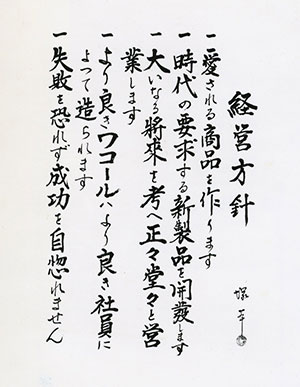 経営方針
一愛される商品を作ります
一時代の要求する新製品を開發します
一大いなる将来を考へ正々堂々と営
業します
一より良きワコールはより良き社員に
よって造られます
一失敗を恐れず成功を自惚れません
塚本